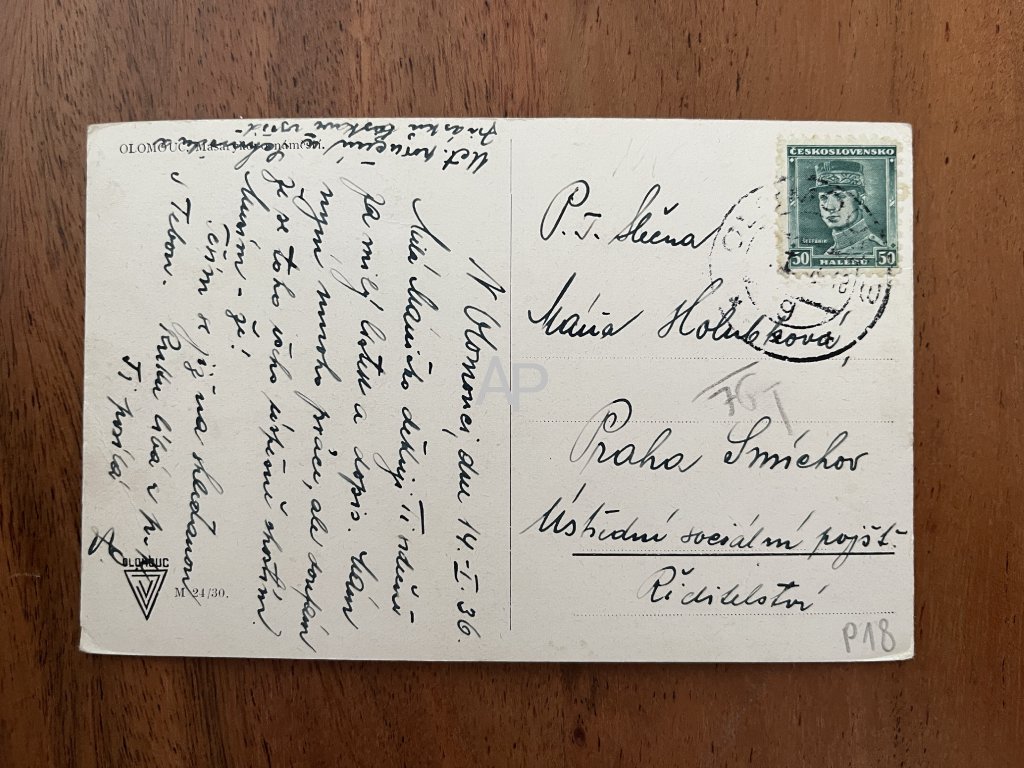 OLOMOUC, Masarykovo náměstí.
V Olomouci, dne 14.-I.-36.
Milá Máničko děkuji Ti srdečně
za milý lístek a dopis. Mám
nyní mnoho práce, ale doufám
že se toho všeho úspěšně zhostím.
Musím - že!
Těším se již na shledanou
s Tebou. Ruku líbá z
Ti posílá
Uct. poručení
OLOMOUC
M 24/30.
ČESKOSLOVENSKO
ŠTEFÁNIK
50 HALÉŘŮ 50
P. T. Slečna
Mária Holubková,
Praha Smíchov
Ústřední sociální pojišť.
Ředitelství
P18
AP